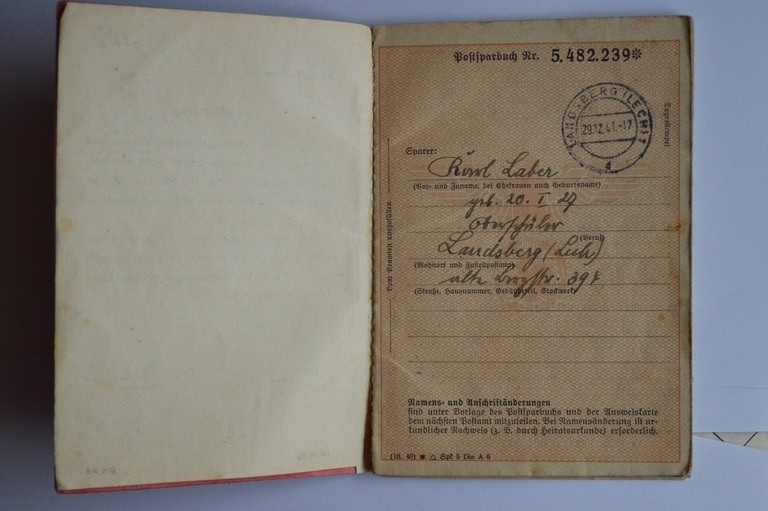 Postsparbuch Nr. 5.482.239*
LANDSBERG (LECH) 1
29.12.41.-17
a
Tagesstempel
Sparer:
Karl Laber
(Vor- und Zuname, bei Ehefrauen auch Geburtsname)
geb. 20. I. 27
Oberschüler
(Beruf)
Landsberg/Lech)
(Wohnort und Zustellpostamt)
alte Bergstr. 394
(Straße, Hausnummer, Gebäudeteil, Stockwerk)
Vom Beamten auszufüllen
Namens- und Anschriftänderungen
sind unter Vorlage des Postsparbuchs und der Ausweiskarte
dem nächsten Postamt mitzuteilen. Bei Namensänderung ist ur-
kundlicher Nachweis (z. B. durch Heiratsurkunde) erforderlich.
Spf 5 Din A 6